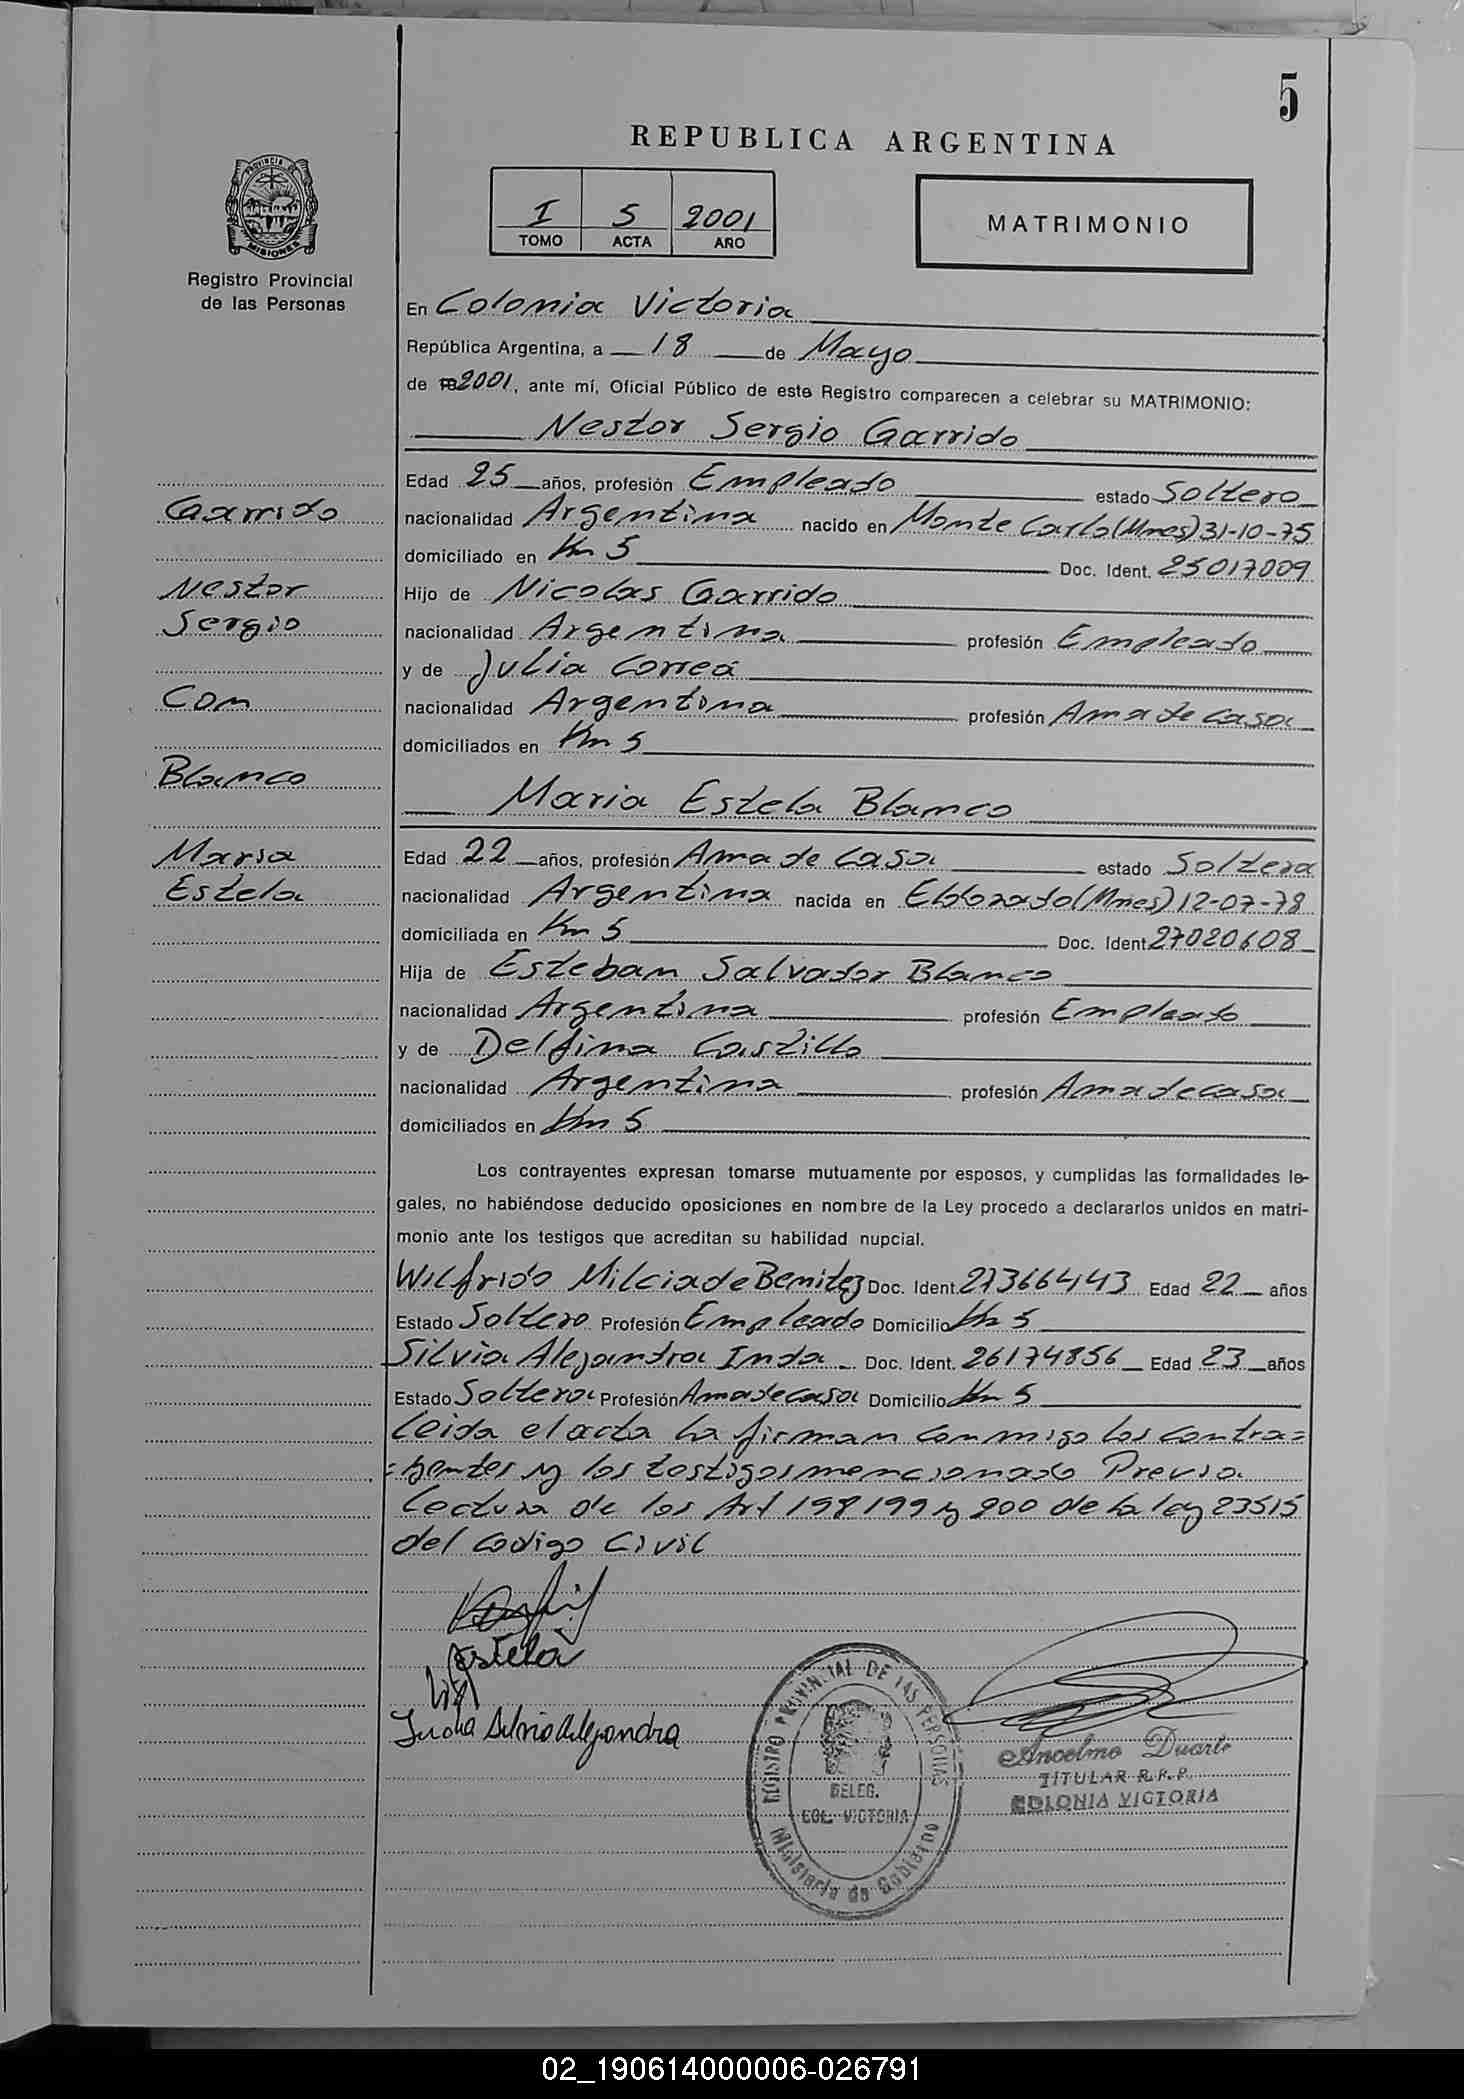 5
REPUBLICA ARGENTINA
PROVINCIA DE
MISIONES
Registro Provincial
de las Personas
I 5 2001
TOMO ACTA AÑO
MATRIMONIO
En Colonia Victoria
República Argentina, a 18 de Mayo
de 2001, ante mí, Oficial Público de este Registro comparecen a celebrar su MATRIMONIO:
Nestor Sergio Garrido
Edad 25 años, profesión Empleado estado Soltero
nacionalidad Argentina nacido en Monte Carlo (Mnes) 31-10-75
domiciliado en Km 5 Doc. Ident. 25017009
Hijo de Nicolas Garrido
nacionalidad Argentina profesión Empleado
y de Julia Correa
nacionalidad Argentina profesión Ama de casa
domiciliados en Km 5
Maria Estela Blanco
Edad 22 años, profesión Ama de casa estado Soltera
nacionalidad Argentina nacida en Eldorado (Mnes) 12-07-78
domiciliada en Km 5 Doc. Ident 27020608
Hija de Esteban Salvador Blanco
nacionalidad Argentina profesión Empleado
y de Delfina Castillo
nacionalidad Argentina profesión Ama de casa
domiciliados en Km 5
Garrido
Nestor
Sergio
Con
Blanco
Maria
Estela
Los contrayentes expresan tomarse mutuamente por esposos, y cumplidas las formalidades le-
gales, no habiéndose deducido oposiciones en nombre de la Ley procedo a declararlos unidos en matri-
monio ante los testigos que acreditan su habilidad nupcial.
Wilfrido Milciade Benitez Doc. Ident. 27366443 Edad 22 años
Estado Soltero Profesión Empleado Domicilio Km 5
Silvia Alejandra Inda Doc. Ident. 26174856 Edad 23 años
Estado Soltera Profesión Ama de casa Domicilio Km 5
Leida el acta la firman conmigo los contra=
=yentes y los testigos mencionado Previa
Lectura de los Art 198 199 y 200 de la ley 23515
del codigo Civil
Estela
Inda Silvia Alejandra
REGISTRO PROVINCIAL DE LAS PERSONAS
DELEG.
COL. VICTORIA
Ministerio de Gobierno
Anselmo Duarte
TITULAR R.P.P.
COLONIA VICTORIA
02_190614000006-026791